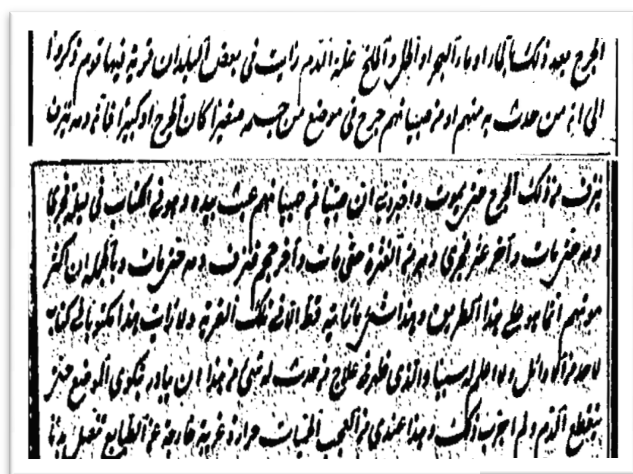 الجرح بعد ذلك بالحار او ماء البحر او الخل والملح غلبه الدم رايت فى بعض البلدان قرية فيها قوم ذكروا
الى انه من حدث به منهم او من صبيانهم جرح فى موضع من جسمه صغيرا كان الجرح او كبيرا فانه دمه ينزف
ينزف من ذلك الجرح حتى يموت واخبرونى ان صبيا من صبيانهم عبث بيده وهو فى الكتاب فى
دمه حتى مات وآخر عثر فجرى دمه من العثرة حتى مات وآخر حجم فنزف دمه حتى مات وبالجملة ان اكثر
موتهم انما هو على هذا الطريق وهذا شئ ما رايته قط الا فى تلك القرية ولا رايت هذا مكتوبا فى كتاب
لاحد من الاوائل ولا اعلم له سببا والذى ظهر من علاج من حدث له شئ من هذا ان يبادر فيكوى الموضع حتى
ينقطع الدم ولم اجرب ذلك وهذا عندى من العجب الحميات حرارة غريبة خارجة عن الطبايع تفعل